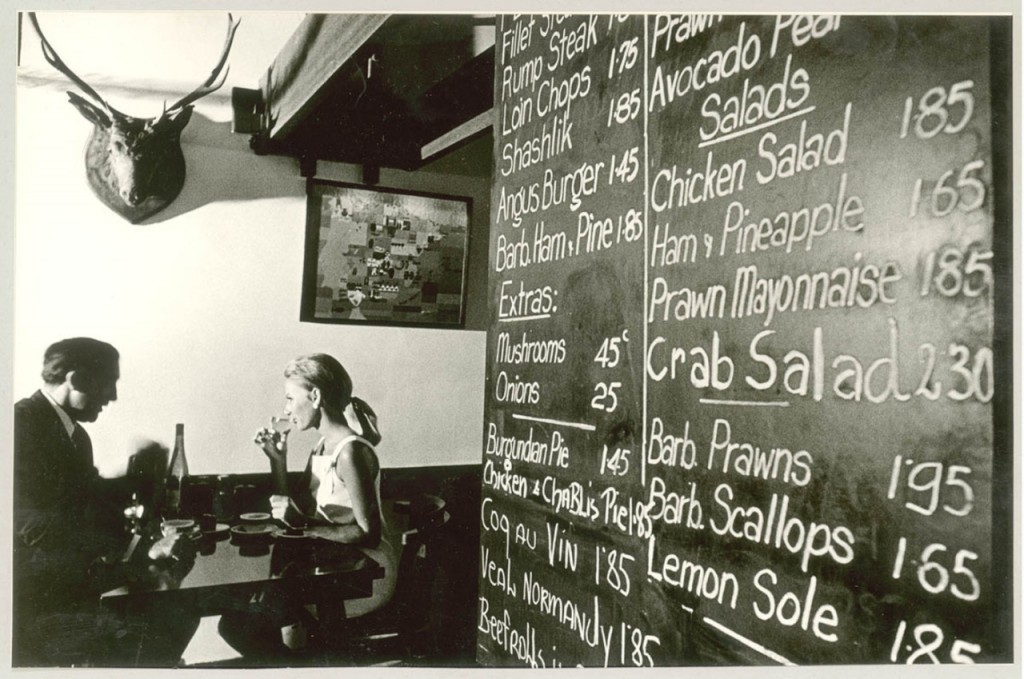 Fillet
Rump Steak
Loin Chops 1·75
Shashlik 1·85
Angus Burger 1·45
Barb. Ham & Pine 1·85
Extras:
Mushrooms 45c
Onions 25
Burgundian Pie 1·45
Chicken & CHABLis Pie 1·85
COQ AU VIN 1·85
VEAL NORMANDY 1·85
Prawn
Avocado Pear
Salads
Chicken Salad 1·85
Ham & Pineapple 1·65
Prawn Mayonnaise 1·85
Crab Salad 2·30
Barb. Prawns 1·95
Barb. Scallops 1·65
Lemon Sole 1·85